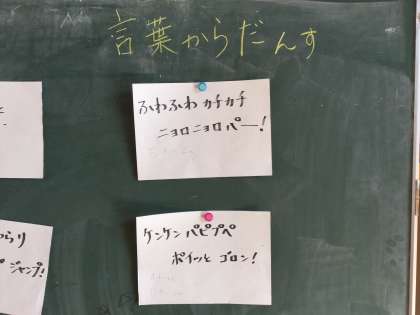 言葉からだんす
ふわふわ カチカチ
ニョロニョロ パー!
ケンケン パピプペ
ポイッと ゴロン!
らり
ジャンプ!